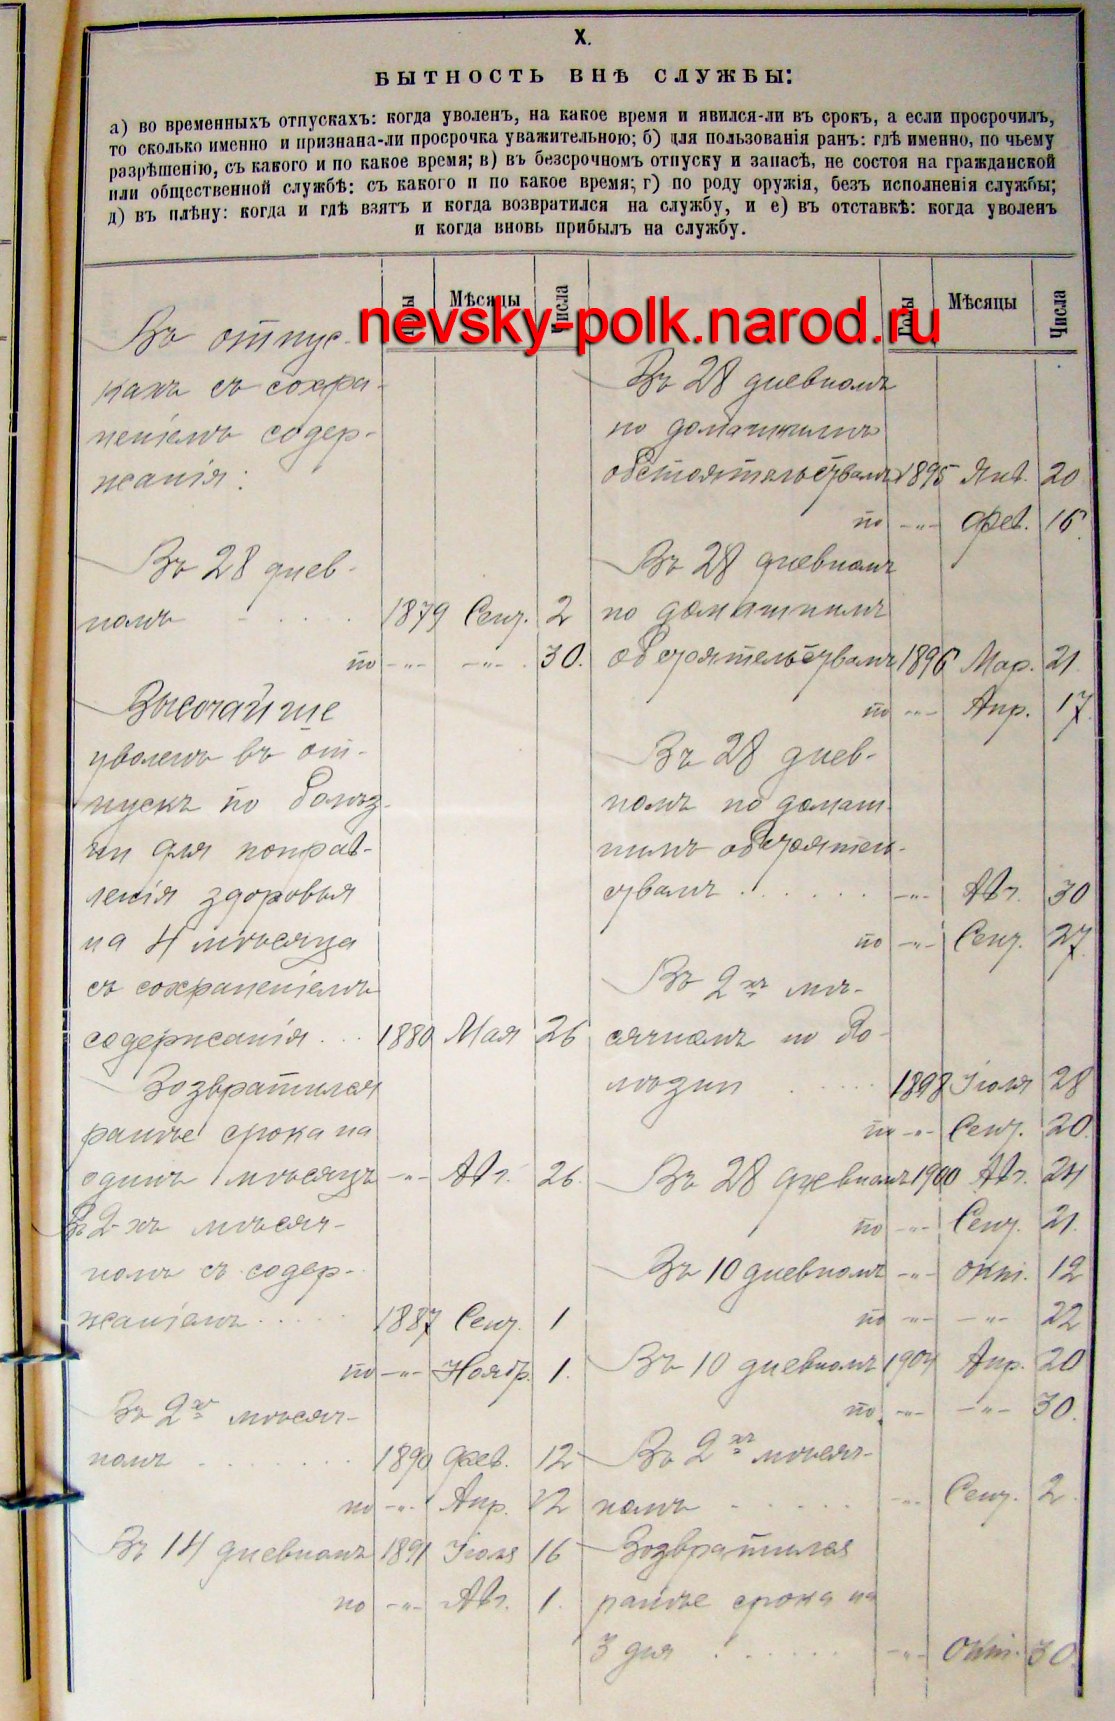 X.
БЫТНОСТЬ ВНѢ СЛУЖБЫ:
а) во временныхъ отпускахъ: когда уволенъ, на какое время и явился-ли въ срокъ, а если просрочилъ,
то сколько именно и признана-ли просрочка уважительною; б) для пользованія ранъ: гдѣ именно, по чьему
разрѣшенію, съ какого и по какое время; в) въ безсрочномъ отпуску и запасѣ, не состоя на гражданской
или общественной службѣ: съ какого и по какое время; г) по роду оружія, безъ исполненія службы;
д) въ плѣну: когда и гдѣ взятъ и когда возвратился на службу, и е) въ отставкѣ: когда уволенъ
и когда вновь прибылъ на службу.
Годы Мѣсяцы Числа
nevsky-polk.narod.ru
Въ отпус-
кахъ съ сохра-
неніемъ содер-
жанія:
Въ 28 днев-
номъ 1879 Сент. 2
по -"- -"- 30.
Высочайше
уволенъ въ от-
пускъ по болѣз-
ни для поправ-
ленія здоровья
на 4 мѣсяца
съ сохраненіемъ
содержанія 1880 Мая 26
Возвратился
ранѣе срока на
одинъ мѣсяцъ -"- Авг. 26.
Въ 2-хъ мѣсяч-
номъ съ содер-
жаніемъ 1887 Сент. 1
по -"- Ноябр. 1.
Въ 2хъ мѣсяч-
номъ 1890 Фев. 12
по -"- Апр. 12
Въ 14 дневномъ 1891 Іюля 16
по -"- Авг. 1.
Годы Мѣсяцы Числа
Въ 28 дневномъ
по домашнимъ
обстоятельствамъ 1895 Янв. 20
по -"- Фев. 16.
Въ 28 дневномъ
по домашнимъ
обстоятельствамъ 1896 Мар. 21.
по -"- Апр. 17.
Въ 28 днев-
номъ по домаш-
нимъ обстоятель-
ствамъ -"- Авг. 30
по -"- Сент. 27.
Въ 2хъ мѣ-
сячномъ по бо-
лѣзни 1898 Іюля 28
по -"- Сент. 20.
Въ 28 дневномъ 1900 Авг. 24
по -"- Сент. 21.
Въ 10 дневномъ -"- Окт. 12
по -"- -"- 22
Въ 10 дневномъ 1904 Апр. 20
по -"- -"- 30.
Въ 2хъ мѣсяч-
номъ -"- Сент. 2.
Возвратился
ранѣе срока на
3 дня -"- Окт. 30.